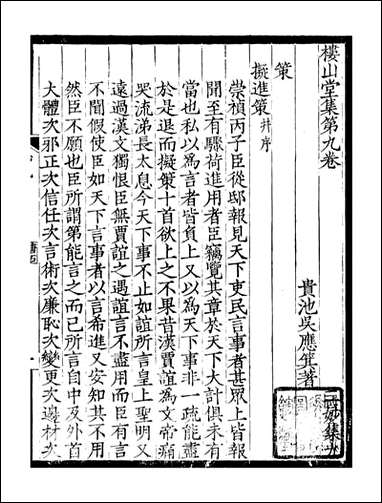 樓山堂集第九卷
貴池吳應箕著
策
擬進策 并序
崇禎丙子臣從邸報見天下吏民言事者甚眾上皆報
聞至有驟荷進用者臣竊覽其章於天下大計俱未有
當也私以為言者皆負上又以為天下事非一疏能盡
於是退而擬策十首欲上之不果昔漢賈誼為文帝痛
哭流涕長太息今天下事不止如誼所言皇上聖明又
遠過漢文獨恨臣無賈誼之遇誼言不盡用而臣有言
不聞假使臣如天下言事者以言希進又安知其不用
然臣不願也臣所謂第能言之而已所言自中及外首
大體次邪正次信任次言術次廉恥次變更次邊材次